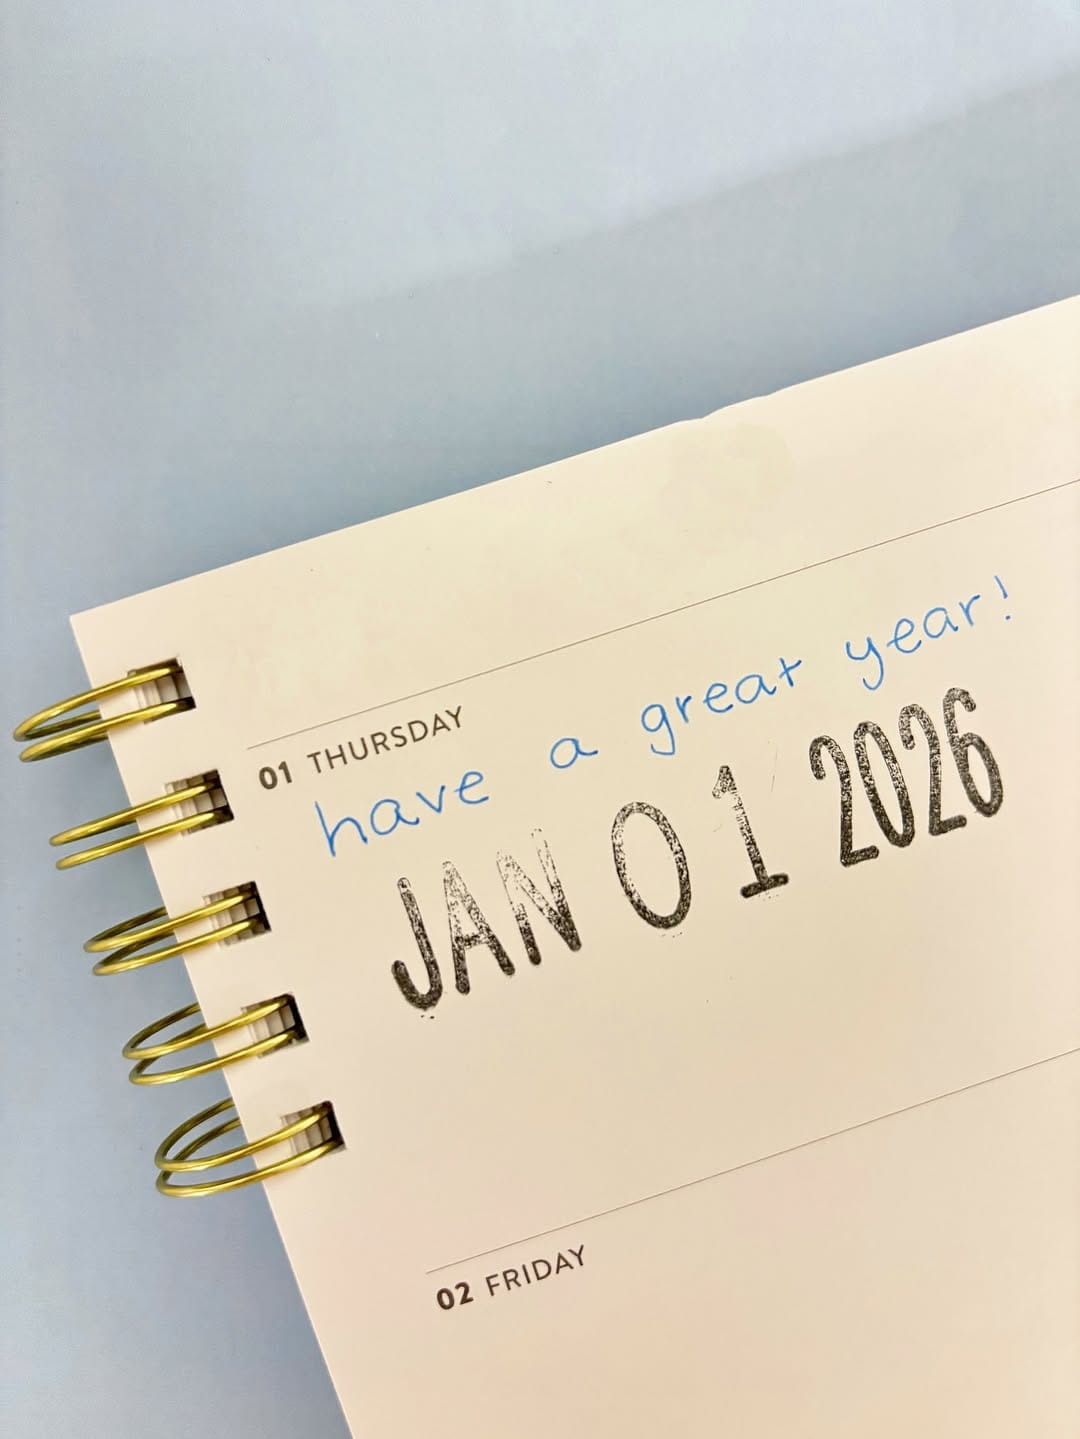 01 THURSDAY
have a great year!
JAN 01 2026
02 FRIDAY